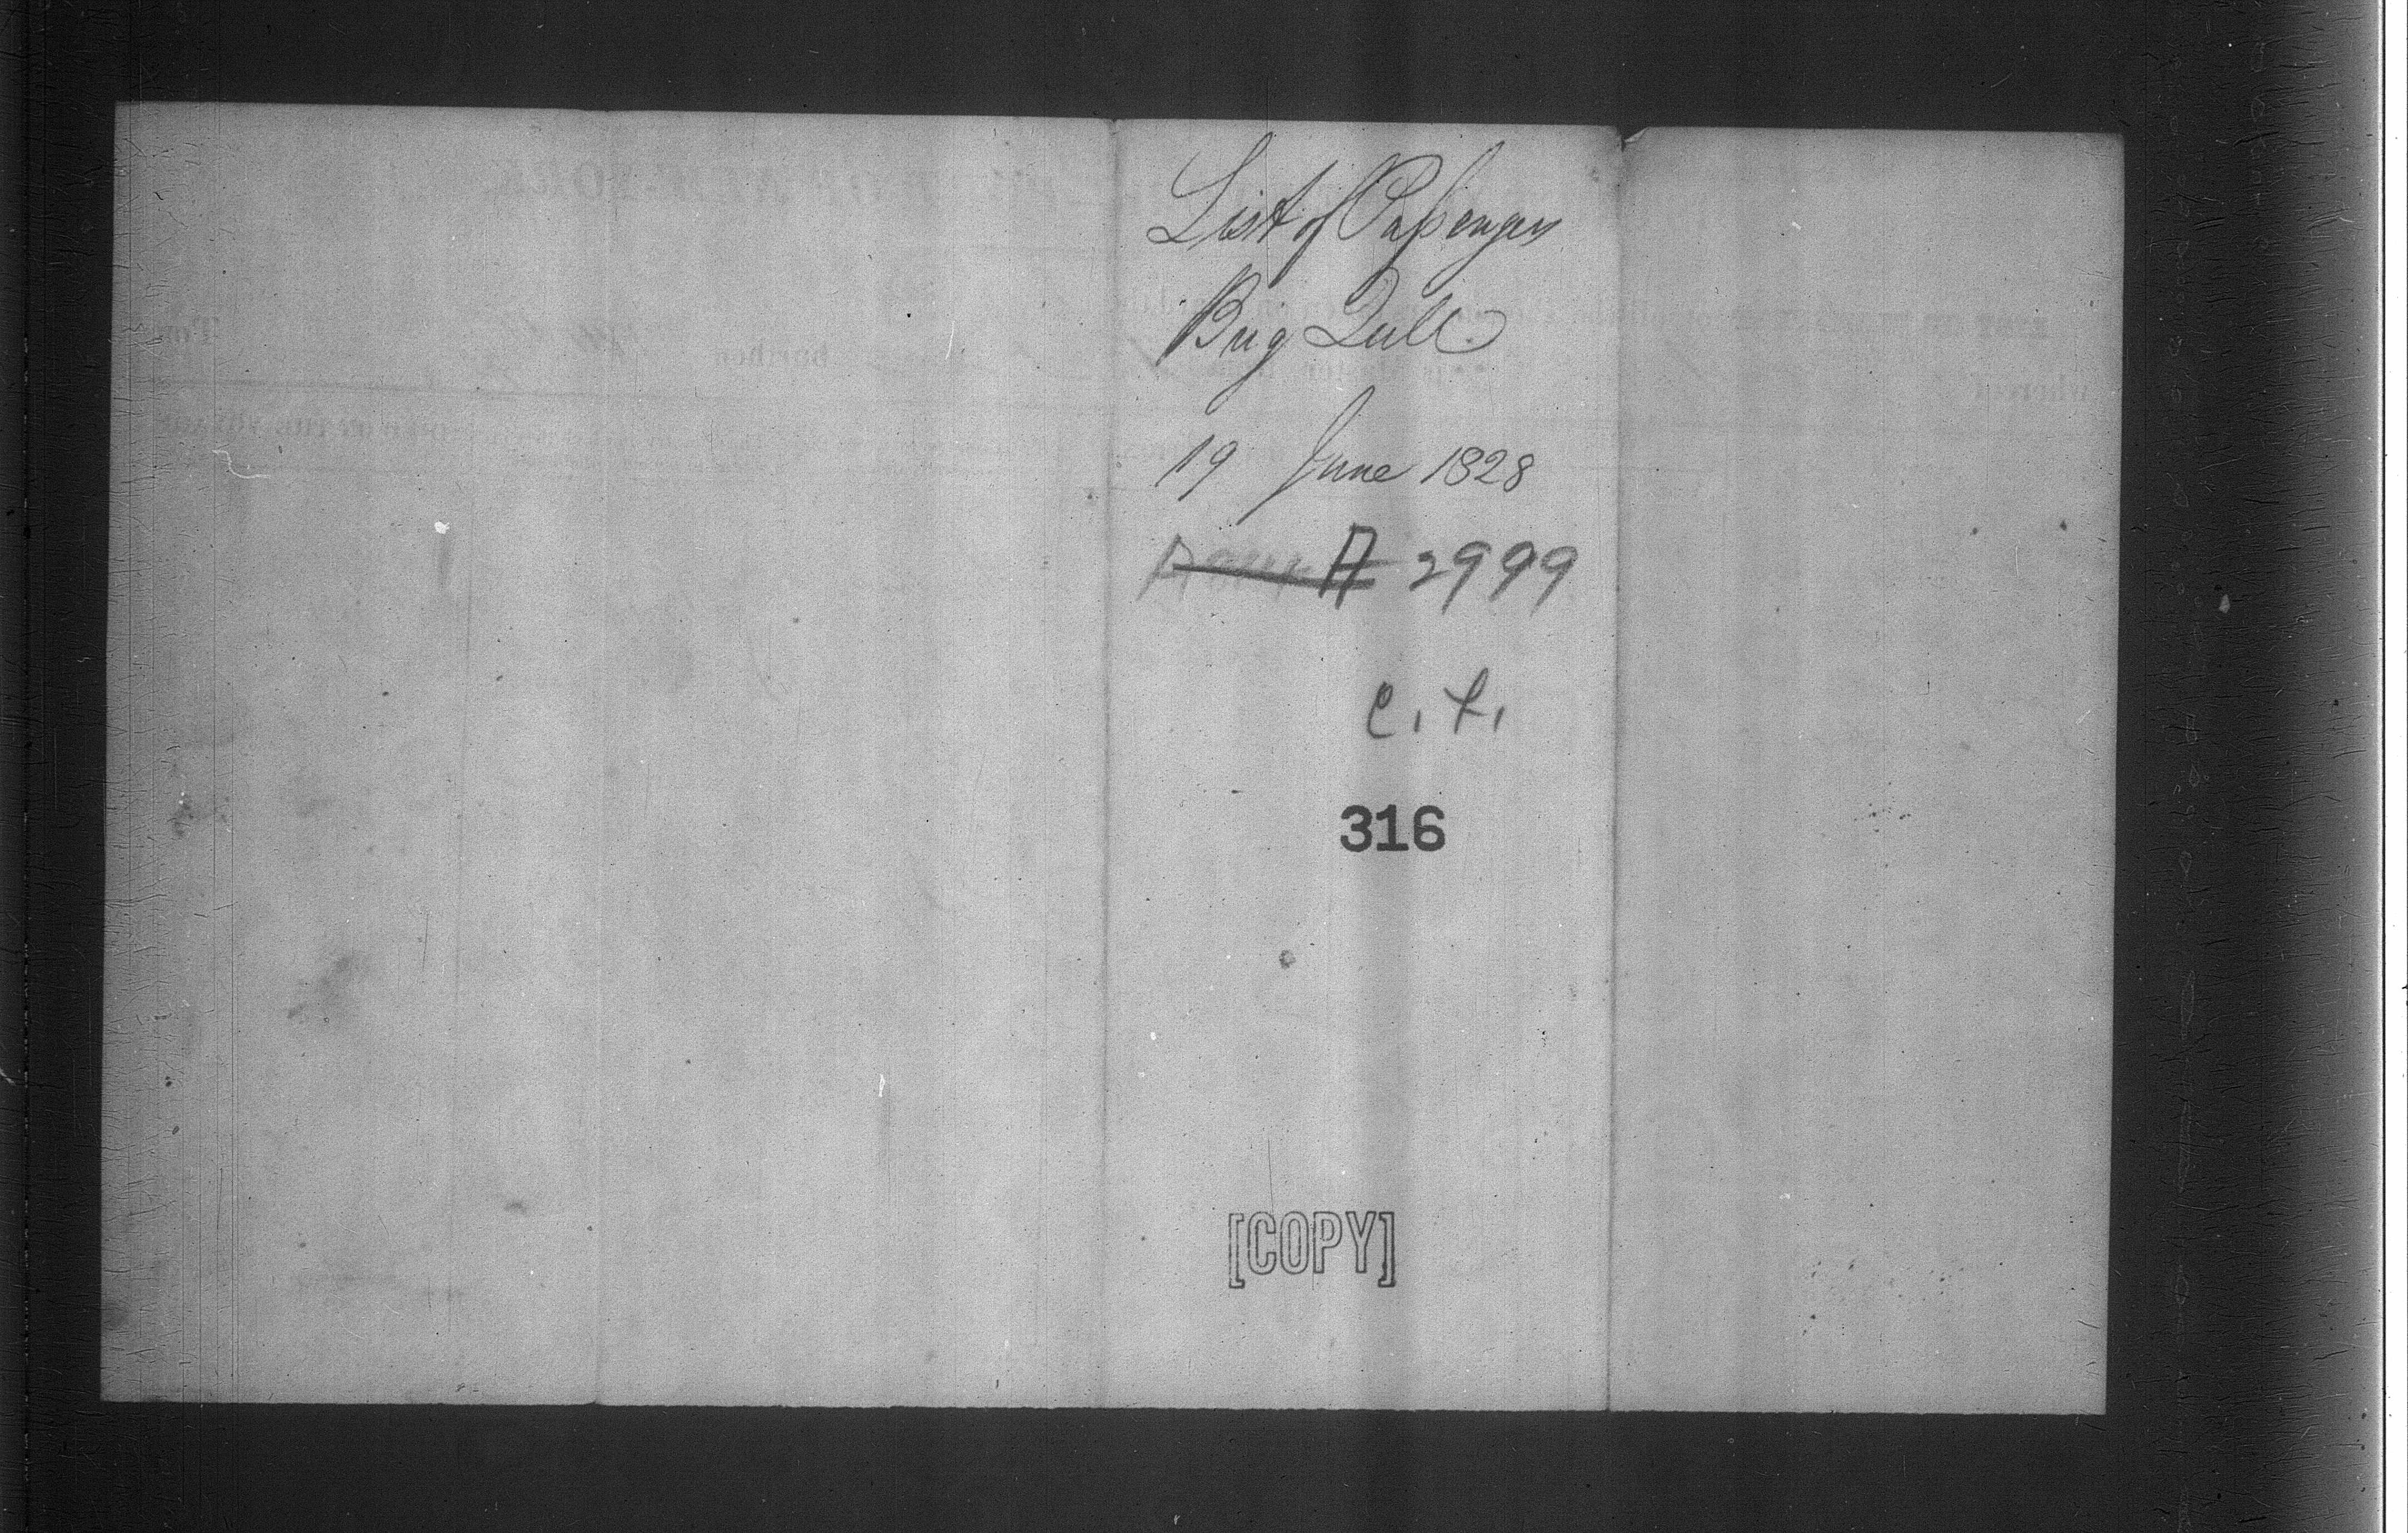 List of Passengers
Brig Lull
19 June 1828
A 2999
c. t.
316
[COPY]